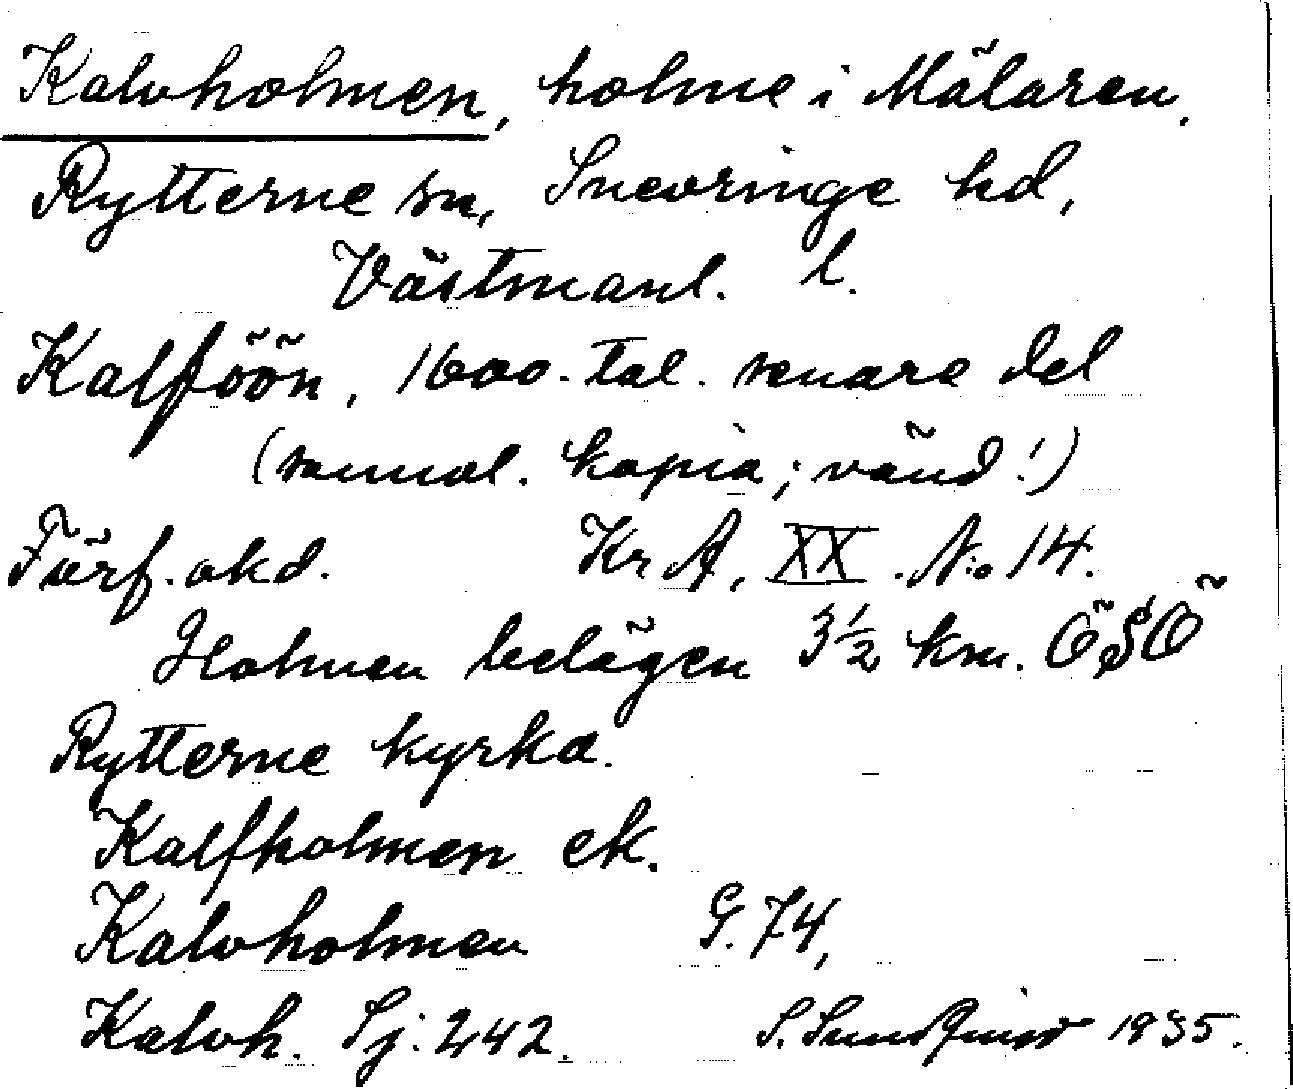 Kalvholmen, holme i Mälaren,
Rytterne sn, Snevringe hd,
Västmanl. l.
Kalföön, 1600-tal. senare del
(samal. kopia; vänd!)
Förf. okd. KrA, XX. No 14.
Holmen belägen 3½ km. ÖSÖ
Rytterne kyrka.
Kalfholmen ek.
Kalvholmen G. 74,
Kalvh. Sj: 242. S. Sundquist 1935.